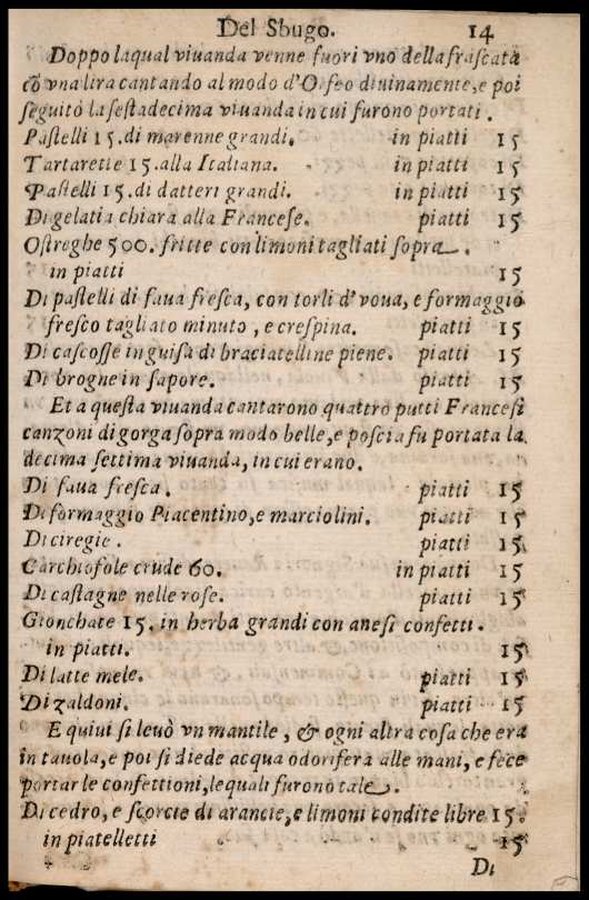 Del Sbugo. 14
Doppo laqual viuanda venne fuori vno della frascata
cō vna lira cantando al modo d'Orfeo diuinamente, e poi
seguitò la sestadecima viuanda in cui furono portati.
Pastelli 15. di marenne grandi. in piatti 15
Tartarette 15. alla Italiana. in piatti 15
Pastelli 15. di datteri grandi. in piatti 15
Di gelatia chiara alla Francese. piatti 15
Ostreghe 500. fritte con limoni tagliati sopra.
in piatti 15
Di pastelli di faua fresca, con torli d'voua, e formaggio
fresco tagliato minuto, e crespina. piatti 15
Di cascosse in guisa di braciatelline piene. piatti 15
Di brogne in sapore. piatti 15
Et a questa viuanda cantarono quattro putti Francesi
canzoni di gorga sopra modo belle, e poscia fu portata la
decima settima viuanda, in cui erano.
Di faua fresca. piatti 15
Di formaggio Piacentino, e marciolini. piatti 15
Di ciregie. piatti 15
Carchiofole crude 60. in piatti 15
Di castagne nelle rose. piatti 15
Gionchate 15. in herba grandi con anesi confetti.
in piatti. 15
Di latte mele. piatti 15
Di zaldoni. piatti 15
E quiui si leuò vn mantile, & ogni altra cosa che era
in tauola, e poi si diede acqua odorifera alle mani, e fece
portar le confettioni, lequali furono tale.
Di cedro, e scorcie di arancie, e limoni condite libre 15.
in piatelletti 15
Di